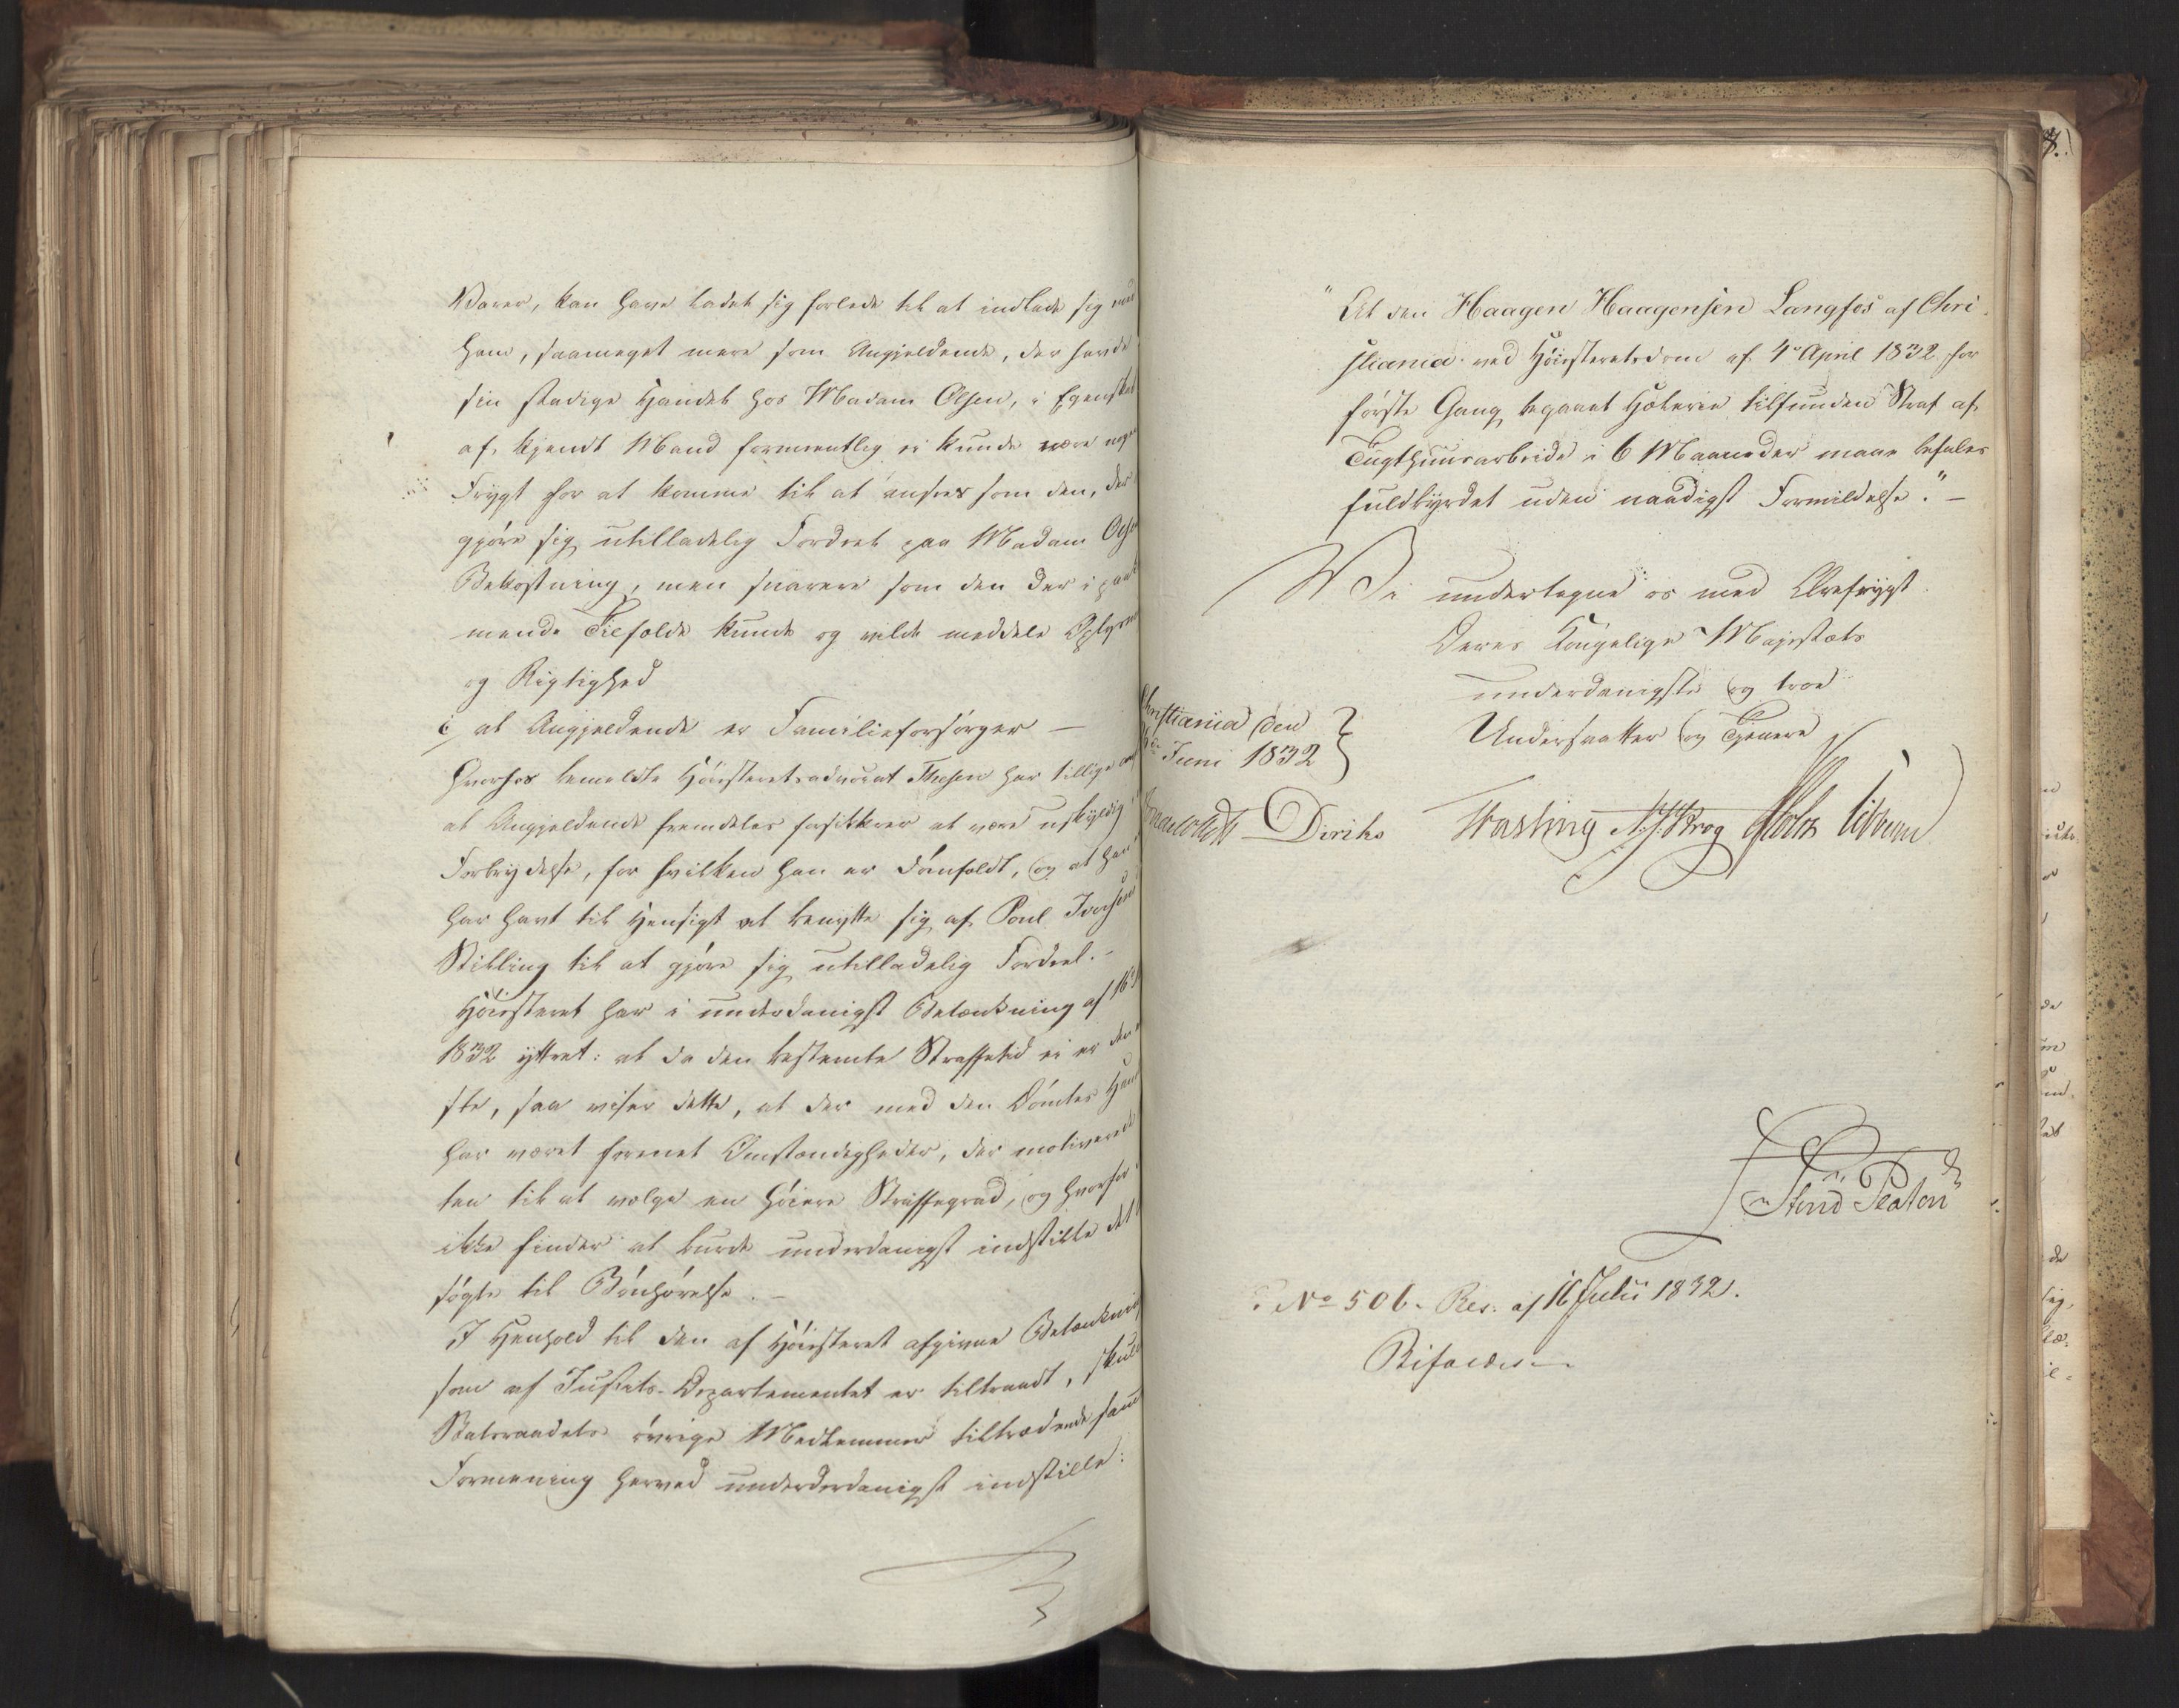 Varer, kan have ladet sig forlede til at indlade sig med
ham, saameget mere som Angjeldende, der havde
sin stadige Handel hos Madam Olsen, i Egenskab
af kjendt Mand formeentlig ei kunde være
Frygt for at komme til at ansees som den, der
gjøre sig utilladelig Fordeel paa Madam
Bekostning, men snarere som den der i
mende Tilfælde kunde og vilde meddele
og Rigtighed
c, at Angjeldende er Familieforsørger —
Hvorhos bemeldte Høiesteretsadvocat Thesen har tillige
at Angjeldende fremdeles forsikkrer at være uskyldig
Forbrydelse, for hvilken han er domfældt, og at han
har havt til Hensigt at benytte sig af Poul Iversens
Stilling til at gjøre sig utilladelig Fordeel. –
Høiesteret har i underdanigst Betænkning af 16
1832 yttret: at da den bestemte Straffetid ei er den
ste, saa viser dette, at der med den Dømtes
har været forenet Omstændigheder, der motiverede
ten til at vælge en høiere Straffegrad, og hvorfor
ikke finder at burde underdanigst indstille det
søgte til Bønhørelse. –
I Henhold til den af Høiesteret afgivne Betænkning
som af Justits-Departementet er tiltraadt, skulle
Statsraadets øvrige Medlemmer tiltrædende
Formening herved underderdanigst indstille:
"At den Haagen Haagensen Langfos af Chri-
stiania ved Høiesteretsdom af 4de April 1832 for
første Gang begaaet Hæleri tilfunden Straf af
Tugthuusarbeide i 6 Maaneder maae befales
fuldbyrdet uden naadigst Formildelse." –
Vi undertegne os med Ærefrygt
Deres Kongelige Majestæts
underdanigste og troe
Undersaatter og Tjenere
Christiania den
Juni 1832
Diriks Fasting Krog Holst Vibe
No 506. Res. af 16 Julii 1832.
Bifaldes